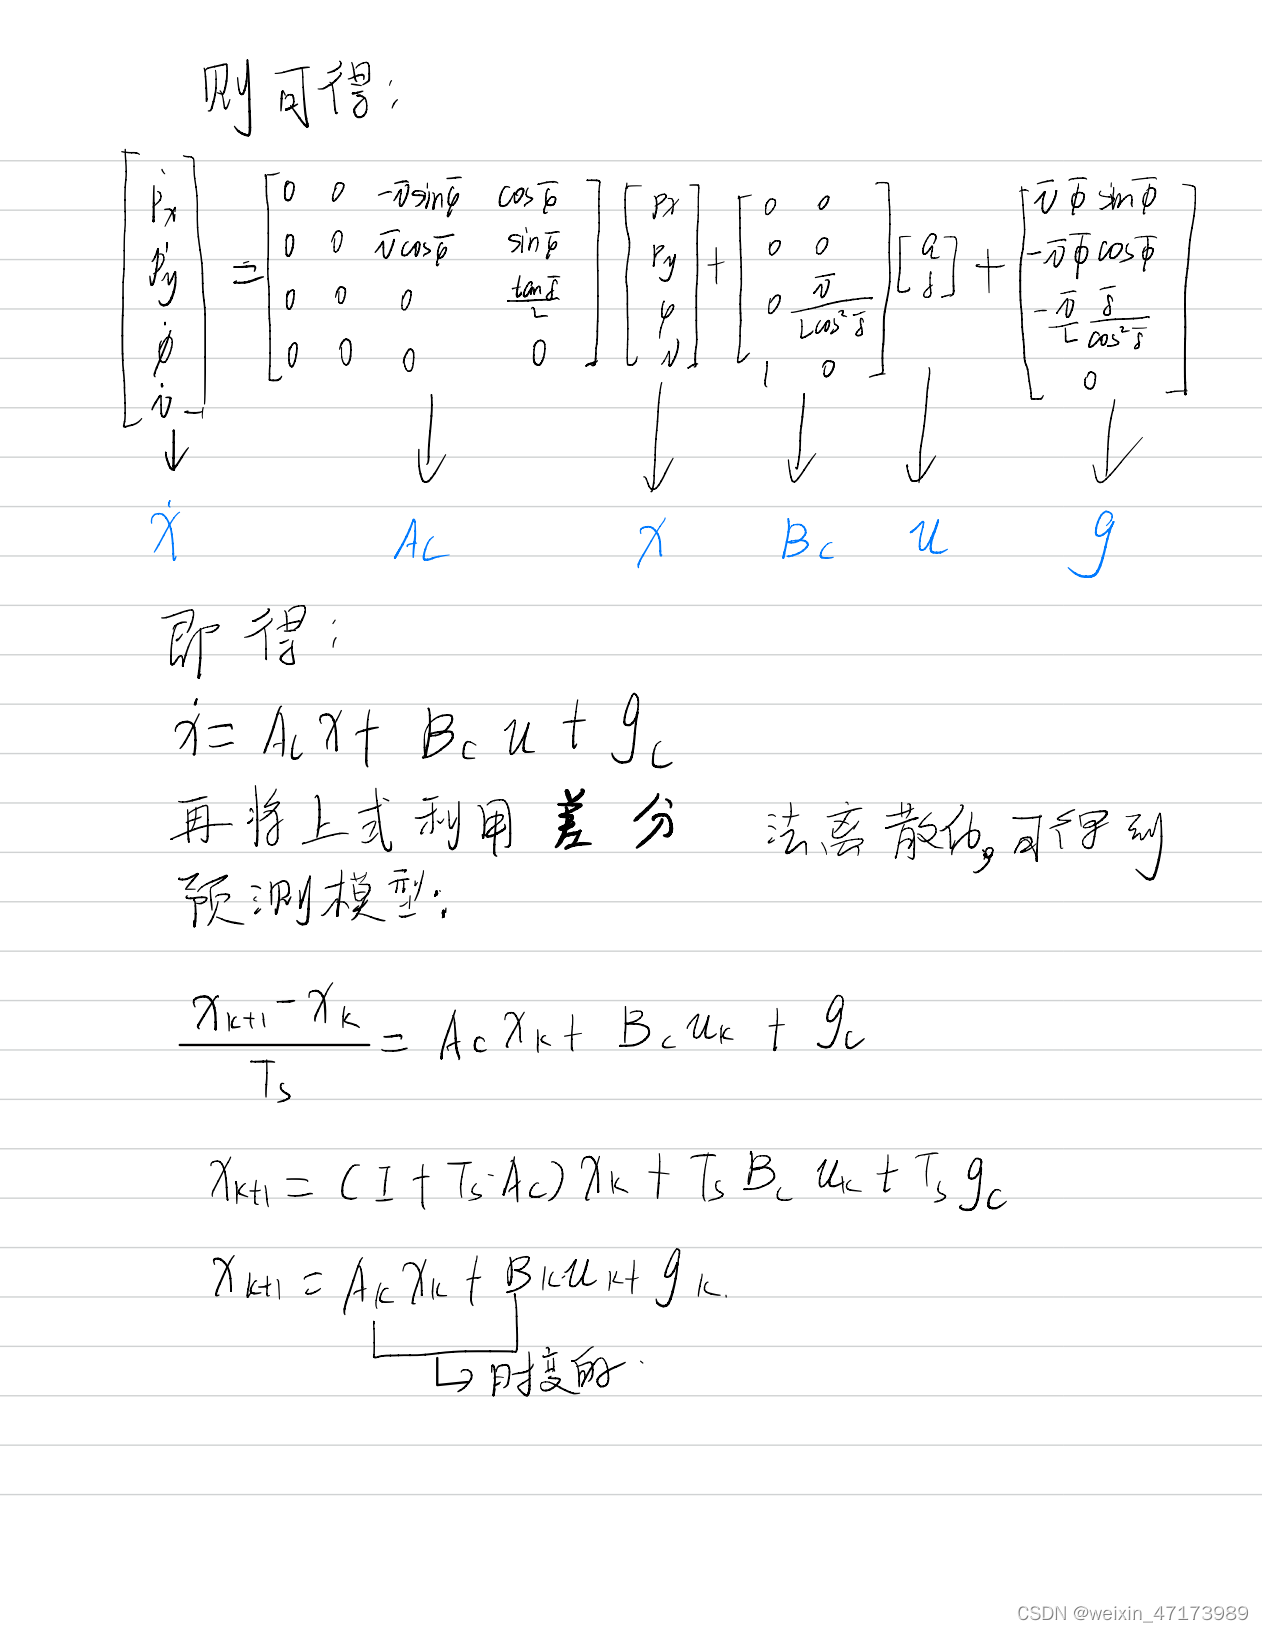 则可得:
[ṗx; ṗy; φ̇; v̇] = [0 0 -v̄sinφ̄ cosφ̄; 0 0 v̄cosφ̄ sinφ̄; 0 0 0 tanδ̄/L; 0 0 0 0] [px; py; φ; v] + [0 0; 0 0; 0 v̄/(Lcos²δ̄); 1 0] [a; δ] + [v̄φ̄sinφ̄; -v̄φ̄cosφ̄; -v̄/L δ̄/cos²δ̄; 0]
ẋ Ac x Bc u g
即得:
ẋ = Ac x + Bc u + gc
再将上式利用差分 法离散化,可得到
预测模型:
(xk+1 - xk)/Ts = Ac xk + Bc uk + gc
xk+1 = (I + Ts·Ac) xk + Ts Bc uk + Ts gc
xk+1 = Ak xk + Bk uk + gk.
时变的.
CSDN @weixin_47173989